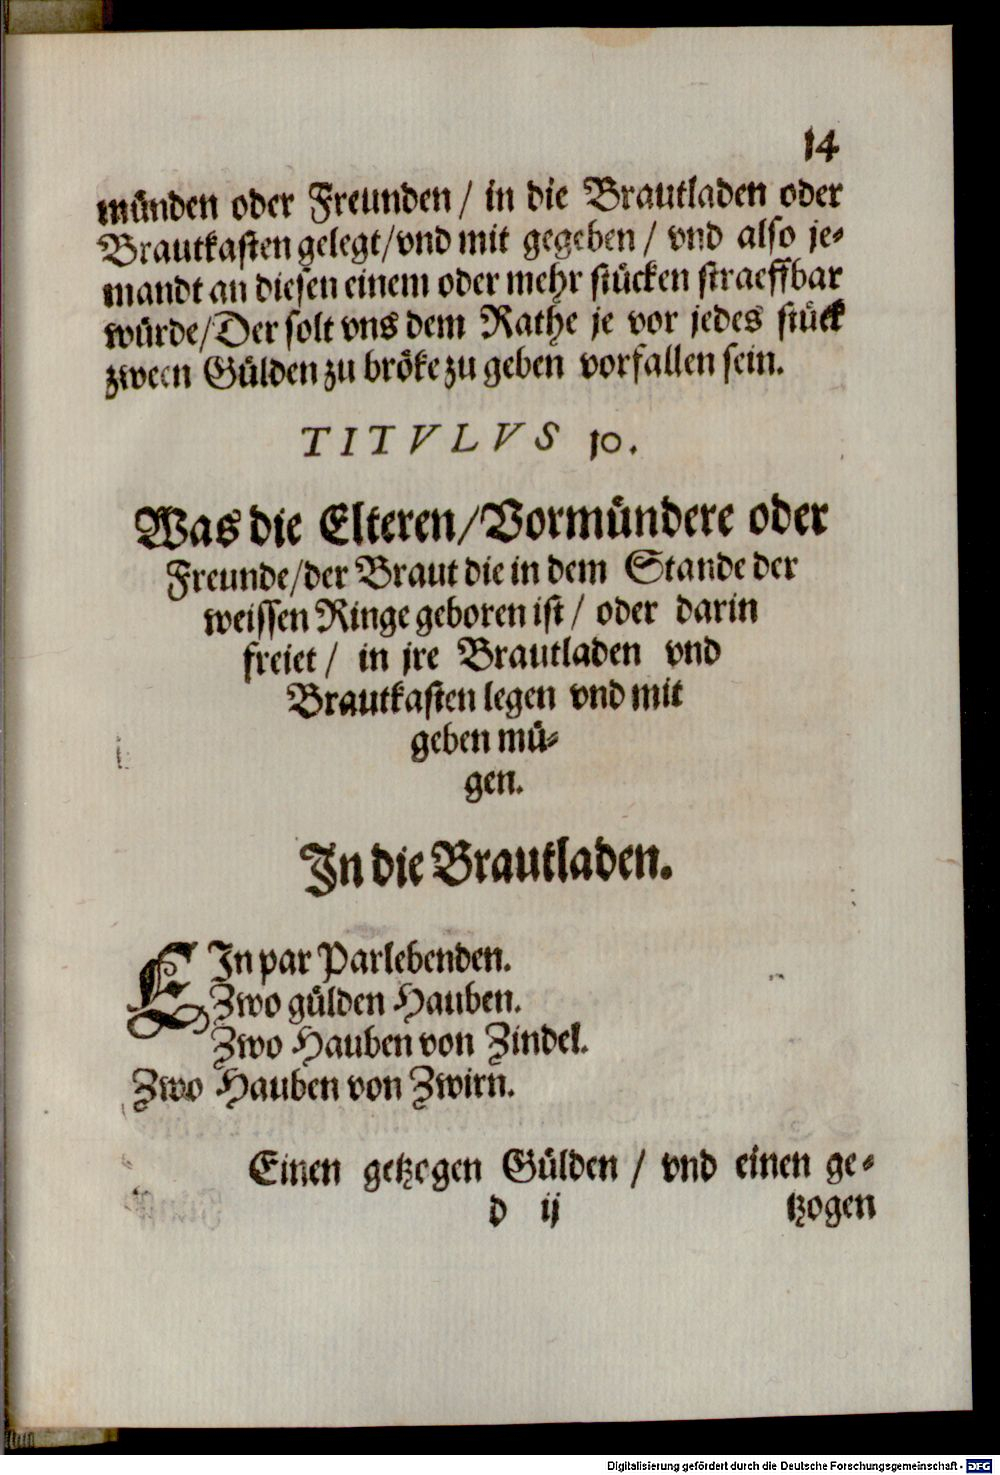 14
münden oder Freunden / in die Brautladen oder
Brautkasten gelegt / vnd mit gegeben / vnd also je⸗
mandt an diesen einem oder mehr stücken straeffbar
würde / Der solt vns dem Rathe je vor jedes stück
zween Gülden zu bröke zu geben vorfallen sein.
TITVLVS 10.
Was die Elteren / Vormündere oder
Freunde / der Braut die in dem Stande der
weissen Ringe geboren ist / oder darin
freiet / in jre Brautladen vnd
Brautkasten legen vnd mit
geben mü⸗
gen.
In die Brautladen.
EIn par Parlebenden.
Zwo gülden Hauben.
Zwo Hauben von Zindel.
Zwo Hauben von Zwirn.
Einen getzogen Gülden / vnd einen ge⸗
d ij tzogen
Digitalisierung gefördert durch die Deutsche Forschungsgemeinschaft - DFG